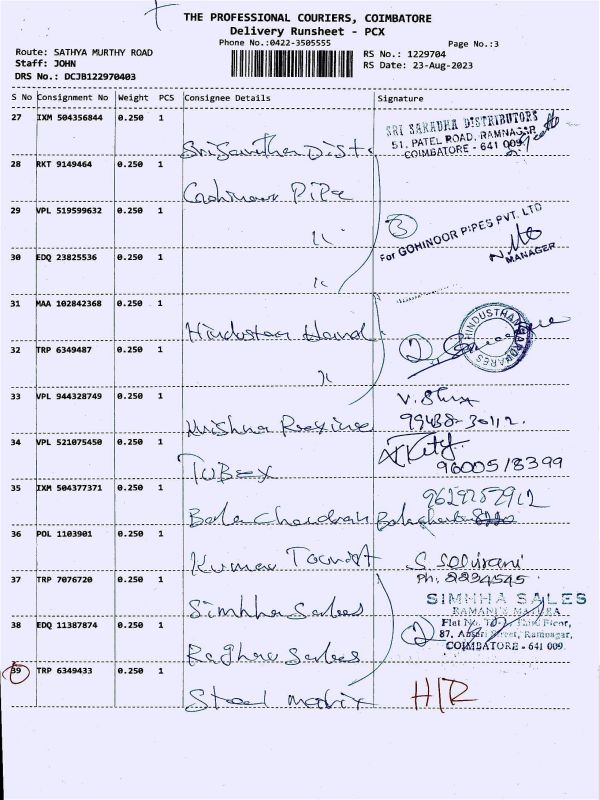 THE PROFESSIONAL COURIERS, COIMBATORE
Delivery Runsheet - PCX
Phone No.:0422-3505555
Page No.:3
Route: SATHYA MURTHY ROAD
RS No.: 1229704
Staff: JOHN
RS Date: 23-Aug-2023
DRS No.: DCJB122970403
S No Consignment No Weight PCS Consignee Details Signature
27 IXM 504356844 0.250 1
SRI SARADHA DISTRIBUTORS
51, PATEL ROAD, RAMNAGAR
COIMBATORE - 641 009
28 RKT 9149464 0.250 1
Cohinoor Pipe
29 VPL 519599632 0.250 1
"
3
For GOHINOOR PIPES PVT. LTD
MANAGER
30 EDQ 23825536 0.250 1
"
31 MAA 102842368 0.250 1
Hindustan Hard
HINDUSTHAN HARDWARES
2
32 TRP 6349487 0.250 1
"
33 VPL 944328749 0.250 1
Krishna Rexine
99438-30112.
34 VPL 521075450 0.250 1
TUBEX
9600518399
35 IXM 504377371 0.250 1
Bala Chandran
9629252912
36 POL 1103901 0.250 1
Kumar Tourist
S. Selvirani
Ph: 2234545
37 TRP 7076720 0.250 1
Simhha Sales
SIMHHA SALES
RAMANI'S MAYURA
Flat No. Third Floor,
87, Ansari Street, Ramnagar,
COIMBATORE - 641 009
2
38 EDQ 11387874 0.250 1
Raghav Sales
39 TRP 6349433 0.250 1
Steel matrix
H/R